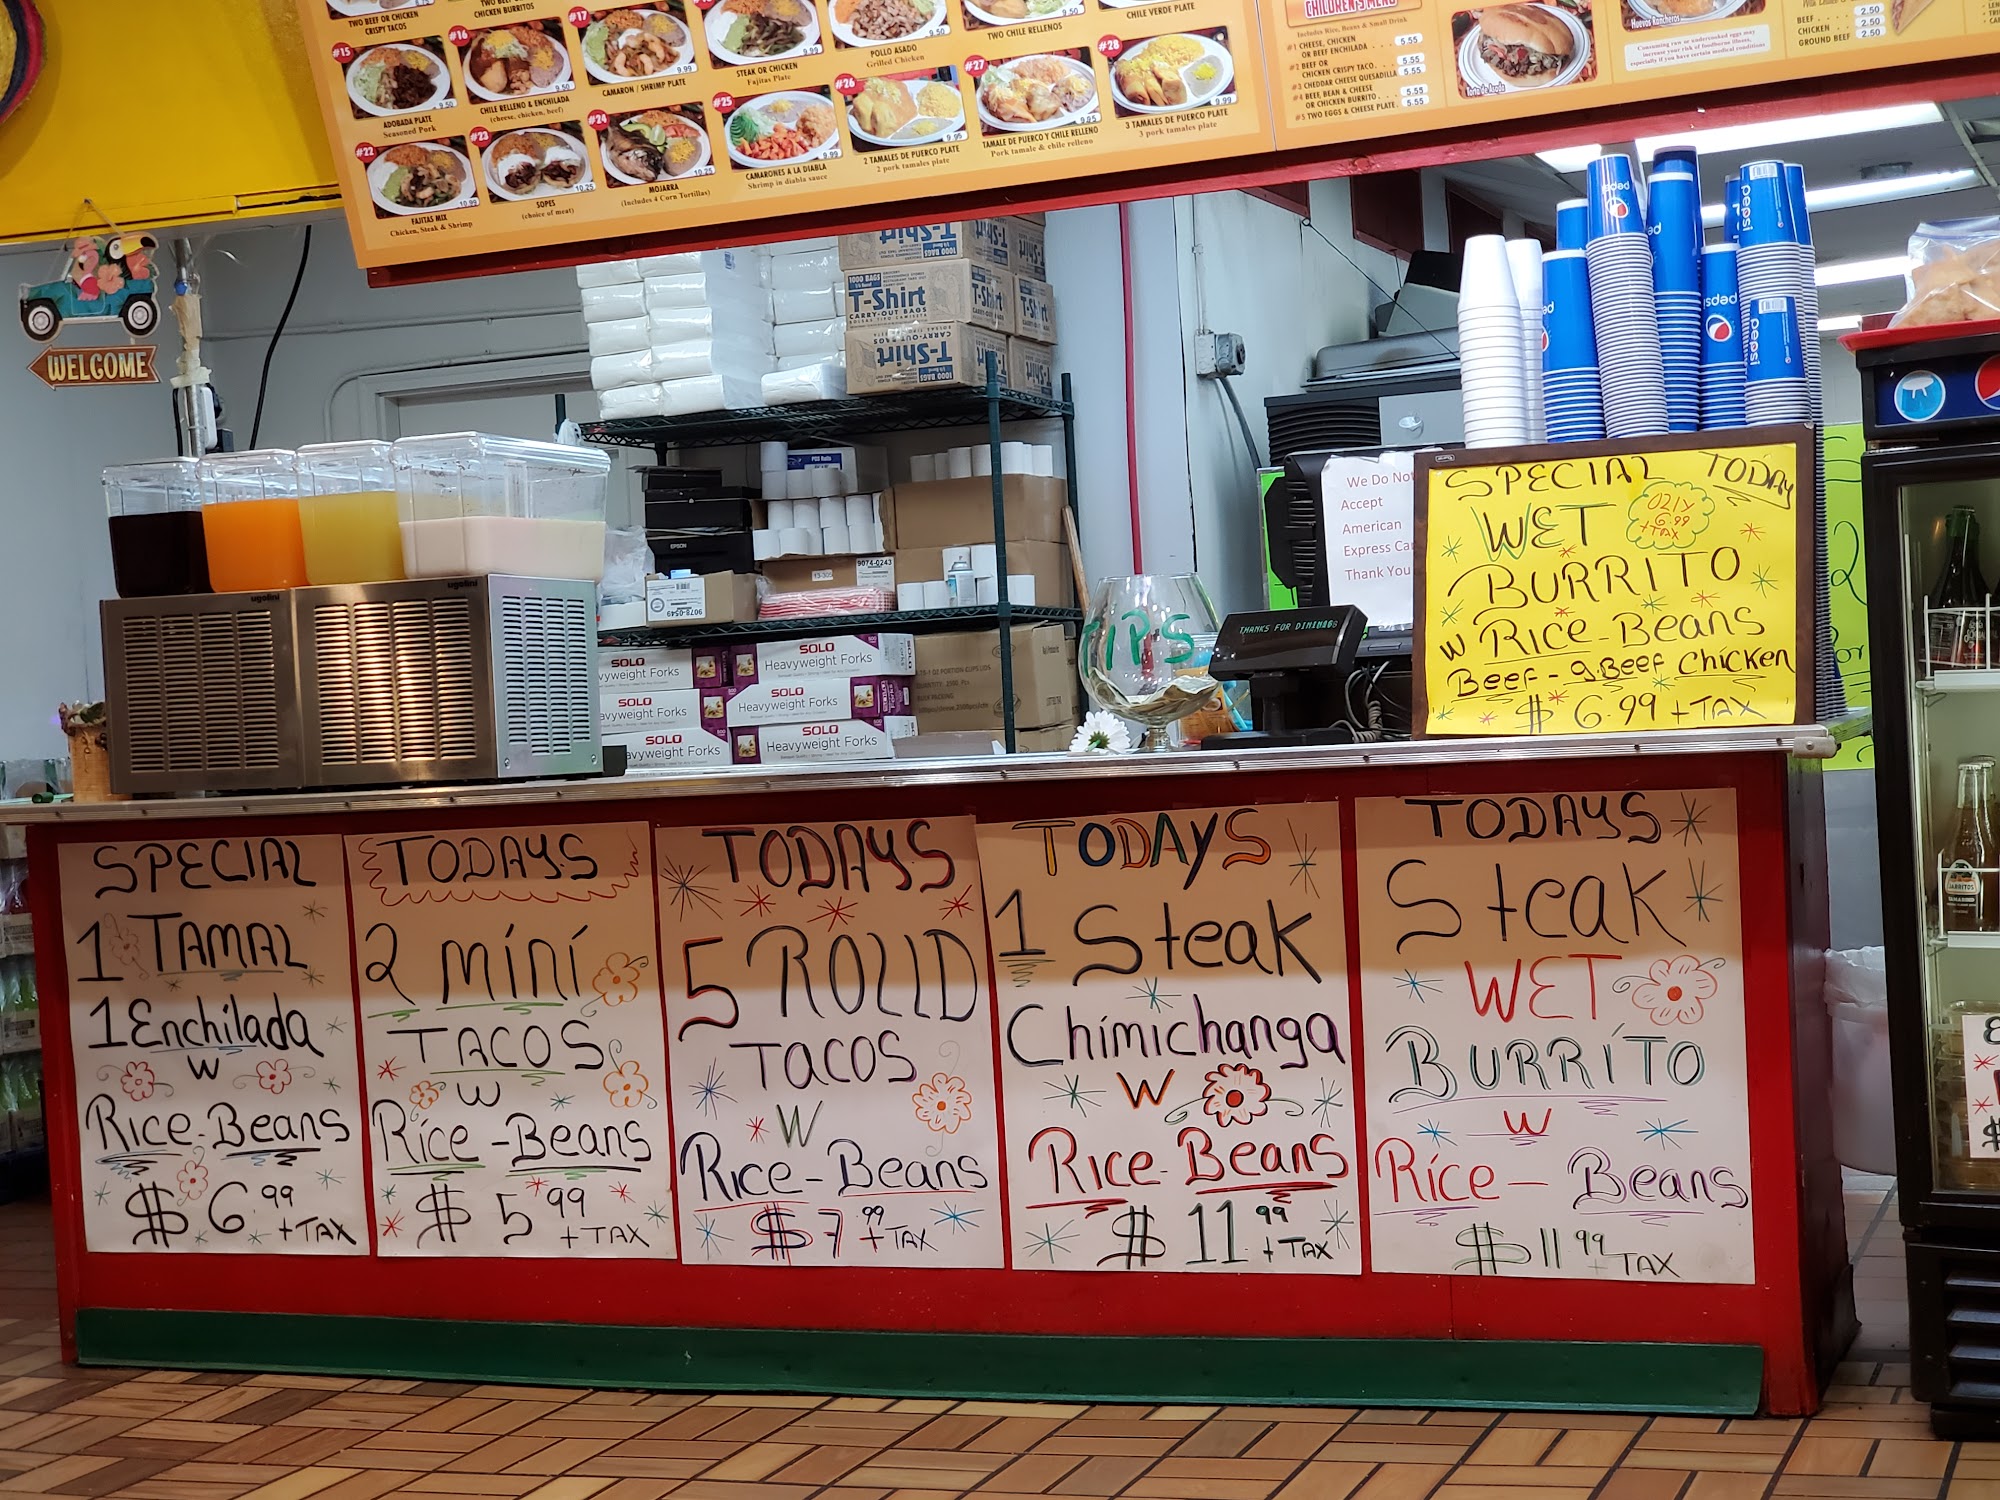 TWO BEEF OR CHICKEN
CRISPY TACOS
CHICKEN BURRITOS
#15
9.50
ADOBADA PLATE
Seasoned Pork
#16
9.50
CHILE RELLENO & ENCHILADA
(cheese, chicken, beef)
#17
9.99
CAMARON / SHRIMP PLATE
9.99
STEAK OR CHICKEN
Fajitas Plate
9.50
POLLO ASADO
Grilled Chicken
9.50
TWO CHILE RELLENOS
CHILE VERDE PLATE
#22
10.99
FAJITAS MIX
Chicken, Steak & Shrimp
#23
10.25
SOPES
(choice of meat)
#24
10.25
MOJARRA
(Includes 4 Corn Tortillas)
#25
9.99
CAMARONES A LA DIABLA
Shrimp in diabla sauce
#26
9.95
2 TAMALES DE PUERCO PLATE
2 pork tamales plate
#27
9.95
TAMALE DE PUERCO Y CHILE RELLENO
Pork tamale & chile relleno
#28
9.99
3 TAMALES DE PUERCO PLATE
3 pork tamales plate
CHILDREN'S MENU
Includes Rice, Beans & Small Drink
#1 CHEESE, CHICKEN
OR BEEF ENCHILADA . . . . 5.55
#2 BEEF OR
CHICKEN CRISPY TACO. . . . 5.55
#3 CHEDDAR CHEESE QUESADILLA 5.55
#4 BEEF, BEAN & CHEESE
OR CHICKEN BURRITO. . . . 5.55
#5 TWO EGGS & CHEESE PLATE. . 5.55
Torta de Asada
Huevos Rancheros
Consuming raw or undercooked eggs may
increase your risk of foodborne illness,
especially if you have certain medical conditions
BEEF 2.50
CHICKEN 2.50
GROUND BEEF 2.50
WELCOME
1000 BAGS
T-Shirt
CARRY-OUT BAGS
T-Shirt
POS Rolls
EPSON
13-305
9074-0243
9078-0549
SOLO
Heavyweight Forks
SOLO
Heavyweight Forks
SOLO
Heavyweight Forks
SOLO
Heavyweight Forks
SOLO
Heavyweight Forks
SOLO
Heavyweight Forks
ugolini
ugolini
TIPS
THANKS FOR DINING
We Do Not
Accept
American
Express Ca
Thank You
pepsi
pepsi
pepsi
pepsi
SPECIAL TODAY
WET
ONLY
6.99
+TAX
BURRITO
W RICE-BEANS
BEEF - g.BEEF CHICKEN
$ 6.99 + TAX
JARRITOS
SPECIAL
1 TAMAL
1 Enchilada
W
RICE-BEANS
$ 6.99
+TAX
TODAYS
2 míní
TACOS
W
Ríce-Beans
$ 5.99
+TAX
TODAYS
5 ROLLD
TACOS
W
RICE-BEANS
$ 7.99
+TAX
TODAYS
1 Steak
Chímichanga
W
RICE-BEANS
$ 11.99
+TAX
TODAYS
Steak
WET
BURRÍTO
W
Ríce - Beans
$ 11.99
+TAX